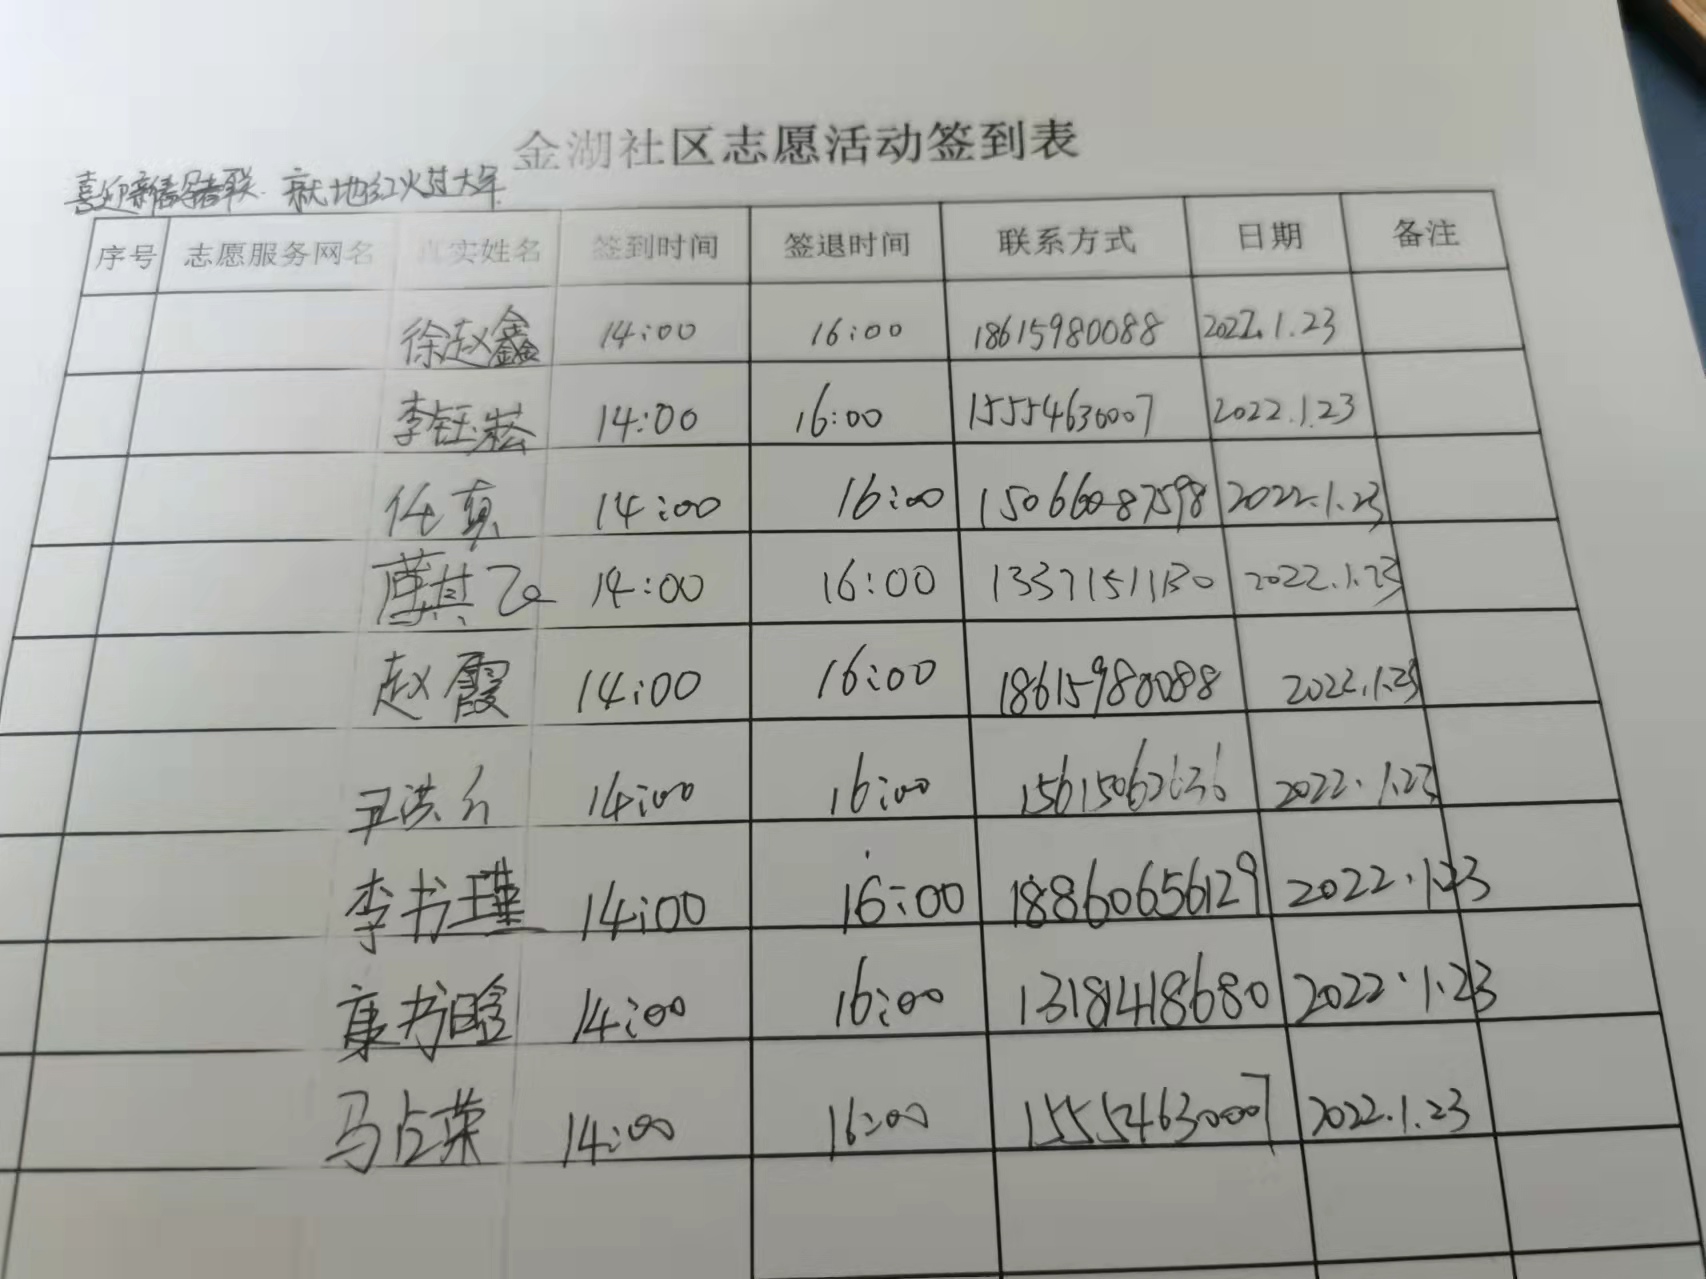 金湖社区志愿活动签到表
喜迎新春写春联 就地红火过大年
序号 志愿服务网名 真实姓名 签到时间 签退时间 联系方式 日期 备注
徐赵鑫 14:00 16:00 18615980088 2022.1.23
李钰崧 14:00 16:00 15554630007 2022.1.23
任真 14:00 16:00 15066087598 2022.1.23
14:00 16:00 13371511130 2022.1.23
赵霞 14:00 16:00 18615980088 2022.1.23
14:00 16:00 2022.1.23
李书瑾 14:00 16:00 18860656129 2022.1.23
康书晗 14:00 16:00 13181418680 2022.1.23
马占荣 14:00 16:00 15554630007 2022.1.23